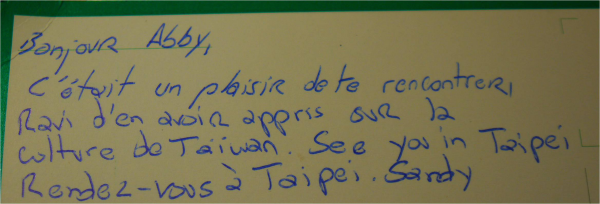 Bonjour Abby,
C'était un plaisir de te rencontrer,
Ravi d'en avoir appris sur la
culture de Taïwan. See you in Taipei
Rendez-vous à Taipei. Sandy